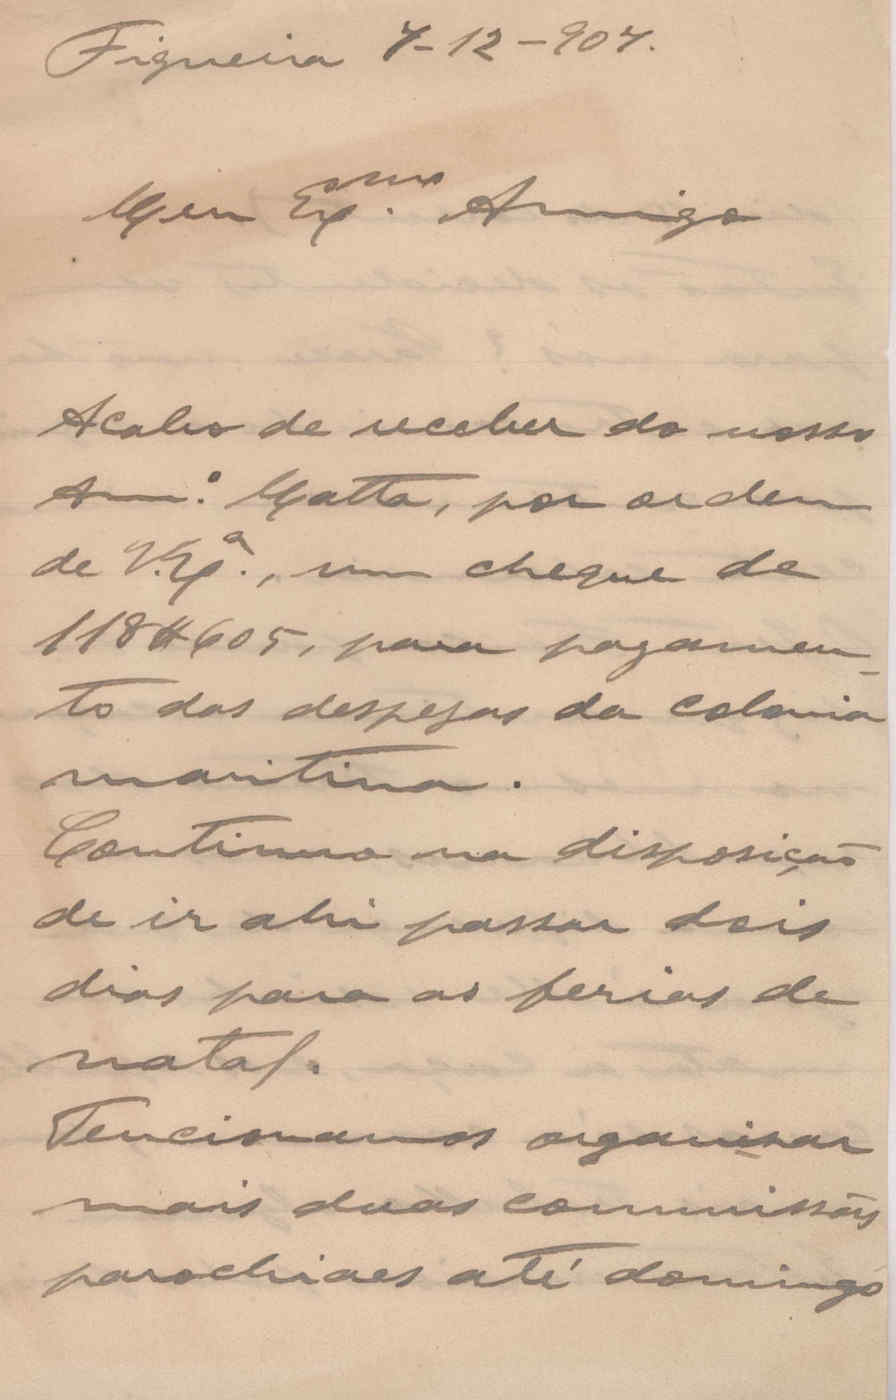 Figueira 7-12-907.
Meu Ex.mo Amigo
Acabo de receber do nosso
Am.º Matta, por ordem
de V. Ex.ª, um cheque de
118$605, para pagamen-
to das despezas da colonia
maritima.
Continuo na disposição
de ir ahi passar dois
dias para as ferias de
natal.
Tencionamos organisar
mais duas commissões
parochiaes até domingo